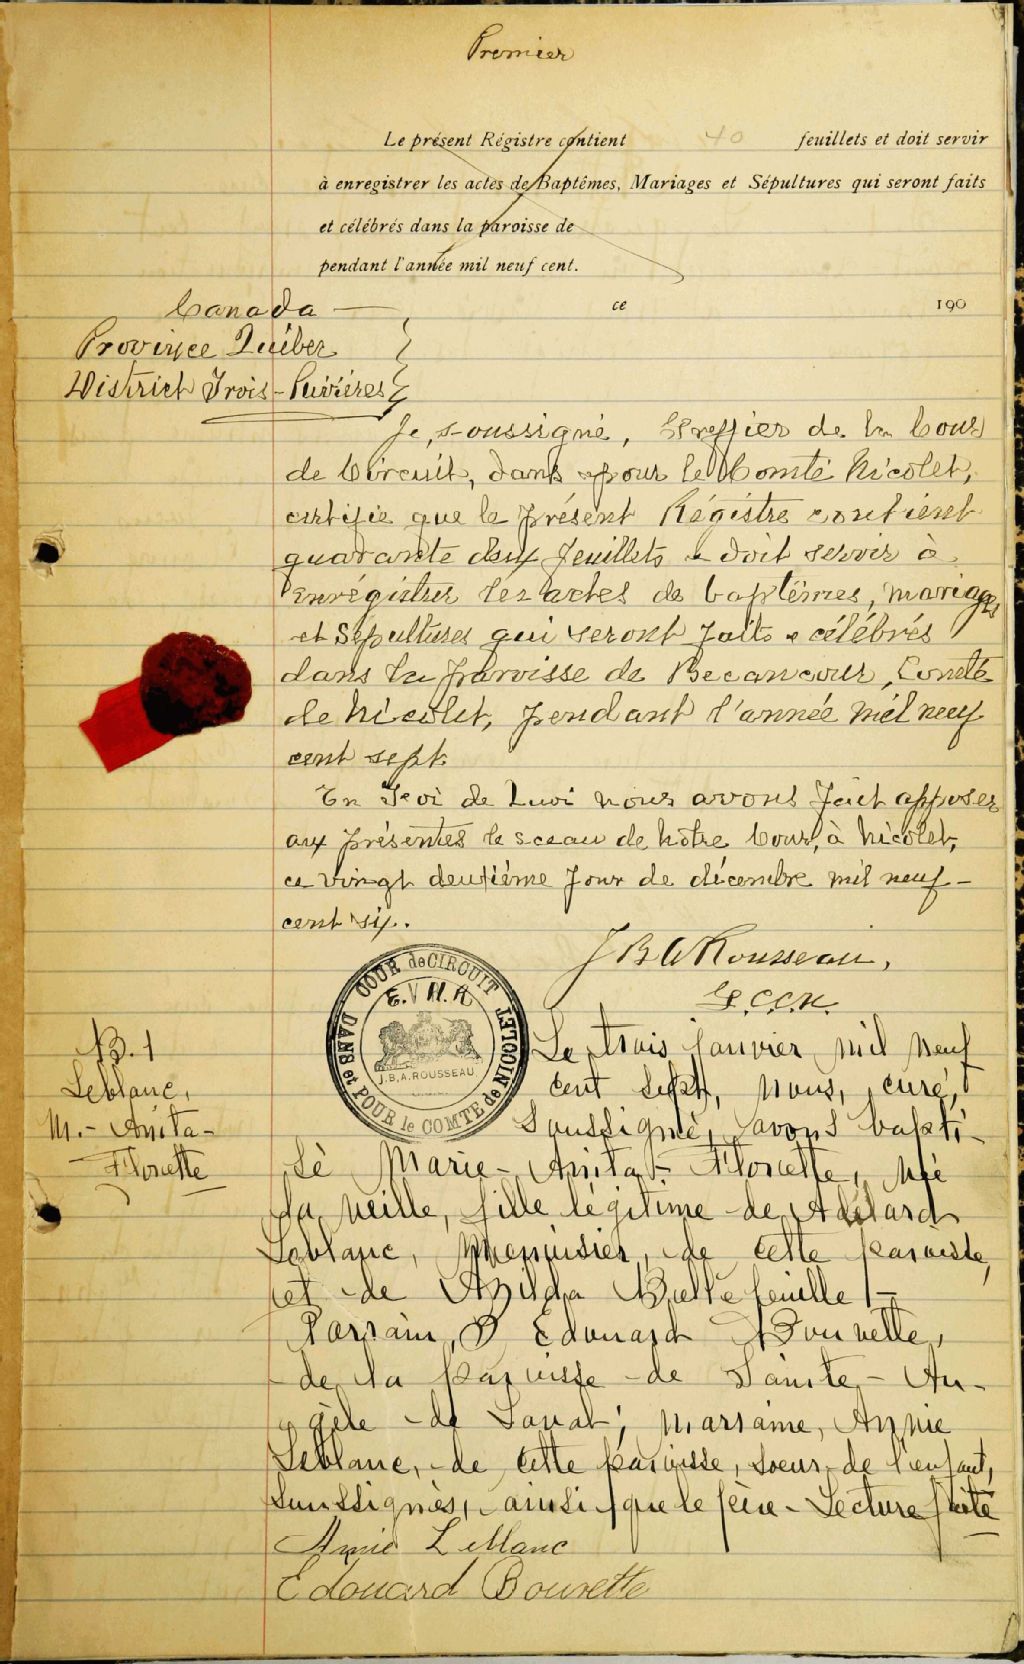 Premier
Le présent Régistre contient 40 feuillets et doit servir
à enregistrer les actes de Baptêmes, Mariages et Sépultures qui seront faits
et célébrés dans la paroisse de
pendant l'année mil neuf cent.
ce 190
Canada
Province Québec
District Trois-Rivières
Je, soussigné, Greffier de la Cour
de Circuit, dans & pour le Comté Nicolet,
certifie que le présent Régistre contient
quarante deux feuillets & doit servir à
enrégistrer les actes de baptêmes, mariages
et Sépultures qui seront faits & célébrés
dans la paroisse de Becancour, Comté
de Nicolet, pendant l'année mil neuf
cent sept.
En Foi de Quoi nous avons fait apposer
aux présentes le sceau de notre Cour, à Nicolet,
ce vingt deuxième jour de décembre mil neuf-
cent six.
J B A Rousseau,
G.C.C.N.
COUR de CIRCUIT
DANS et POUR le COMTE de NICOLET
E.VII.R
J.B.A. ROUSSEAU
B. 1
Leblanc,
M.- Anita-
Florette
Le trois janvier mil neuf
cent sept, nous, curé,
soussigné, avons bapti-
sé Marie-Anita-Florette, née
la veille, fille légitime de Adélard
Leblanc, menuisier, de cette paroisse,
et de Azilda Bellefeuille -
Parrain, Edouard Bourette,
de la paroisse de Sainte-An-
gèle de Laval; marraine, Annie
Leblanc, de cette paroisse, soeur de l'enfant,
soussignés, ainsi que le père - Lecture faite
Annie LeBlanc
Edouard Bourette